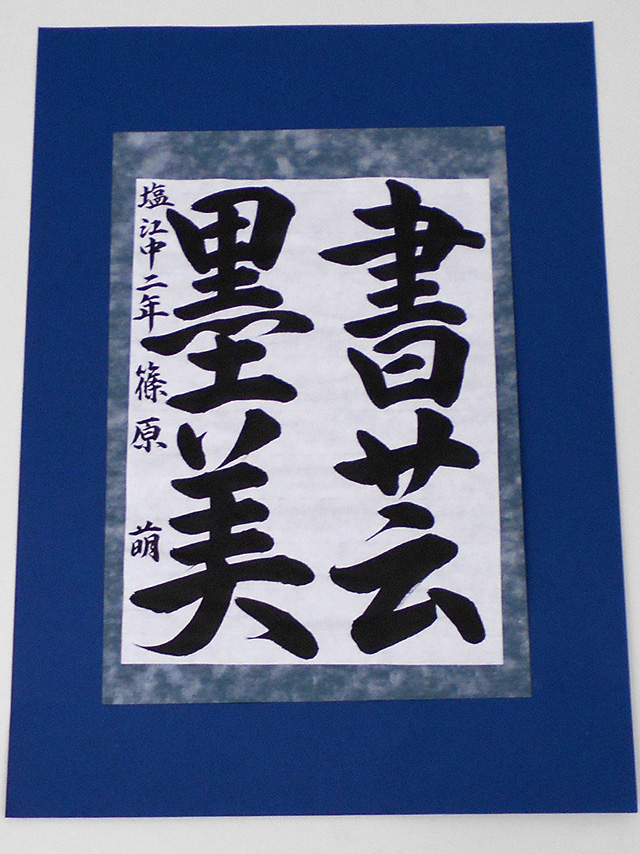 書芸
墨美
塩江中二年 篠原 萌